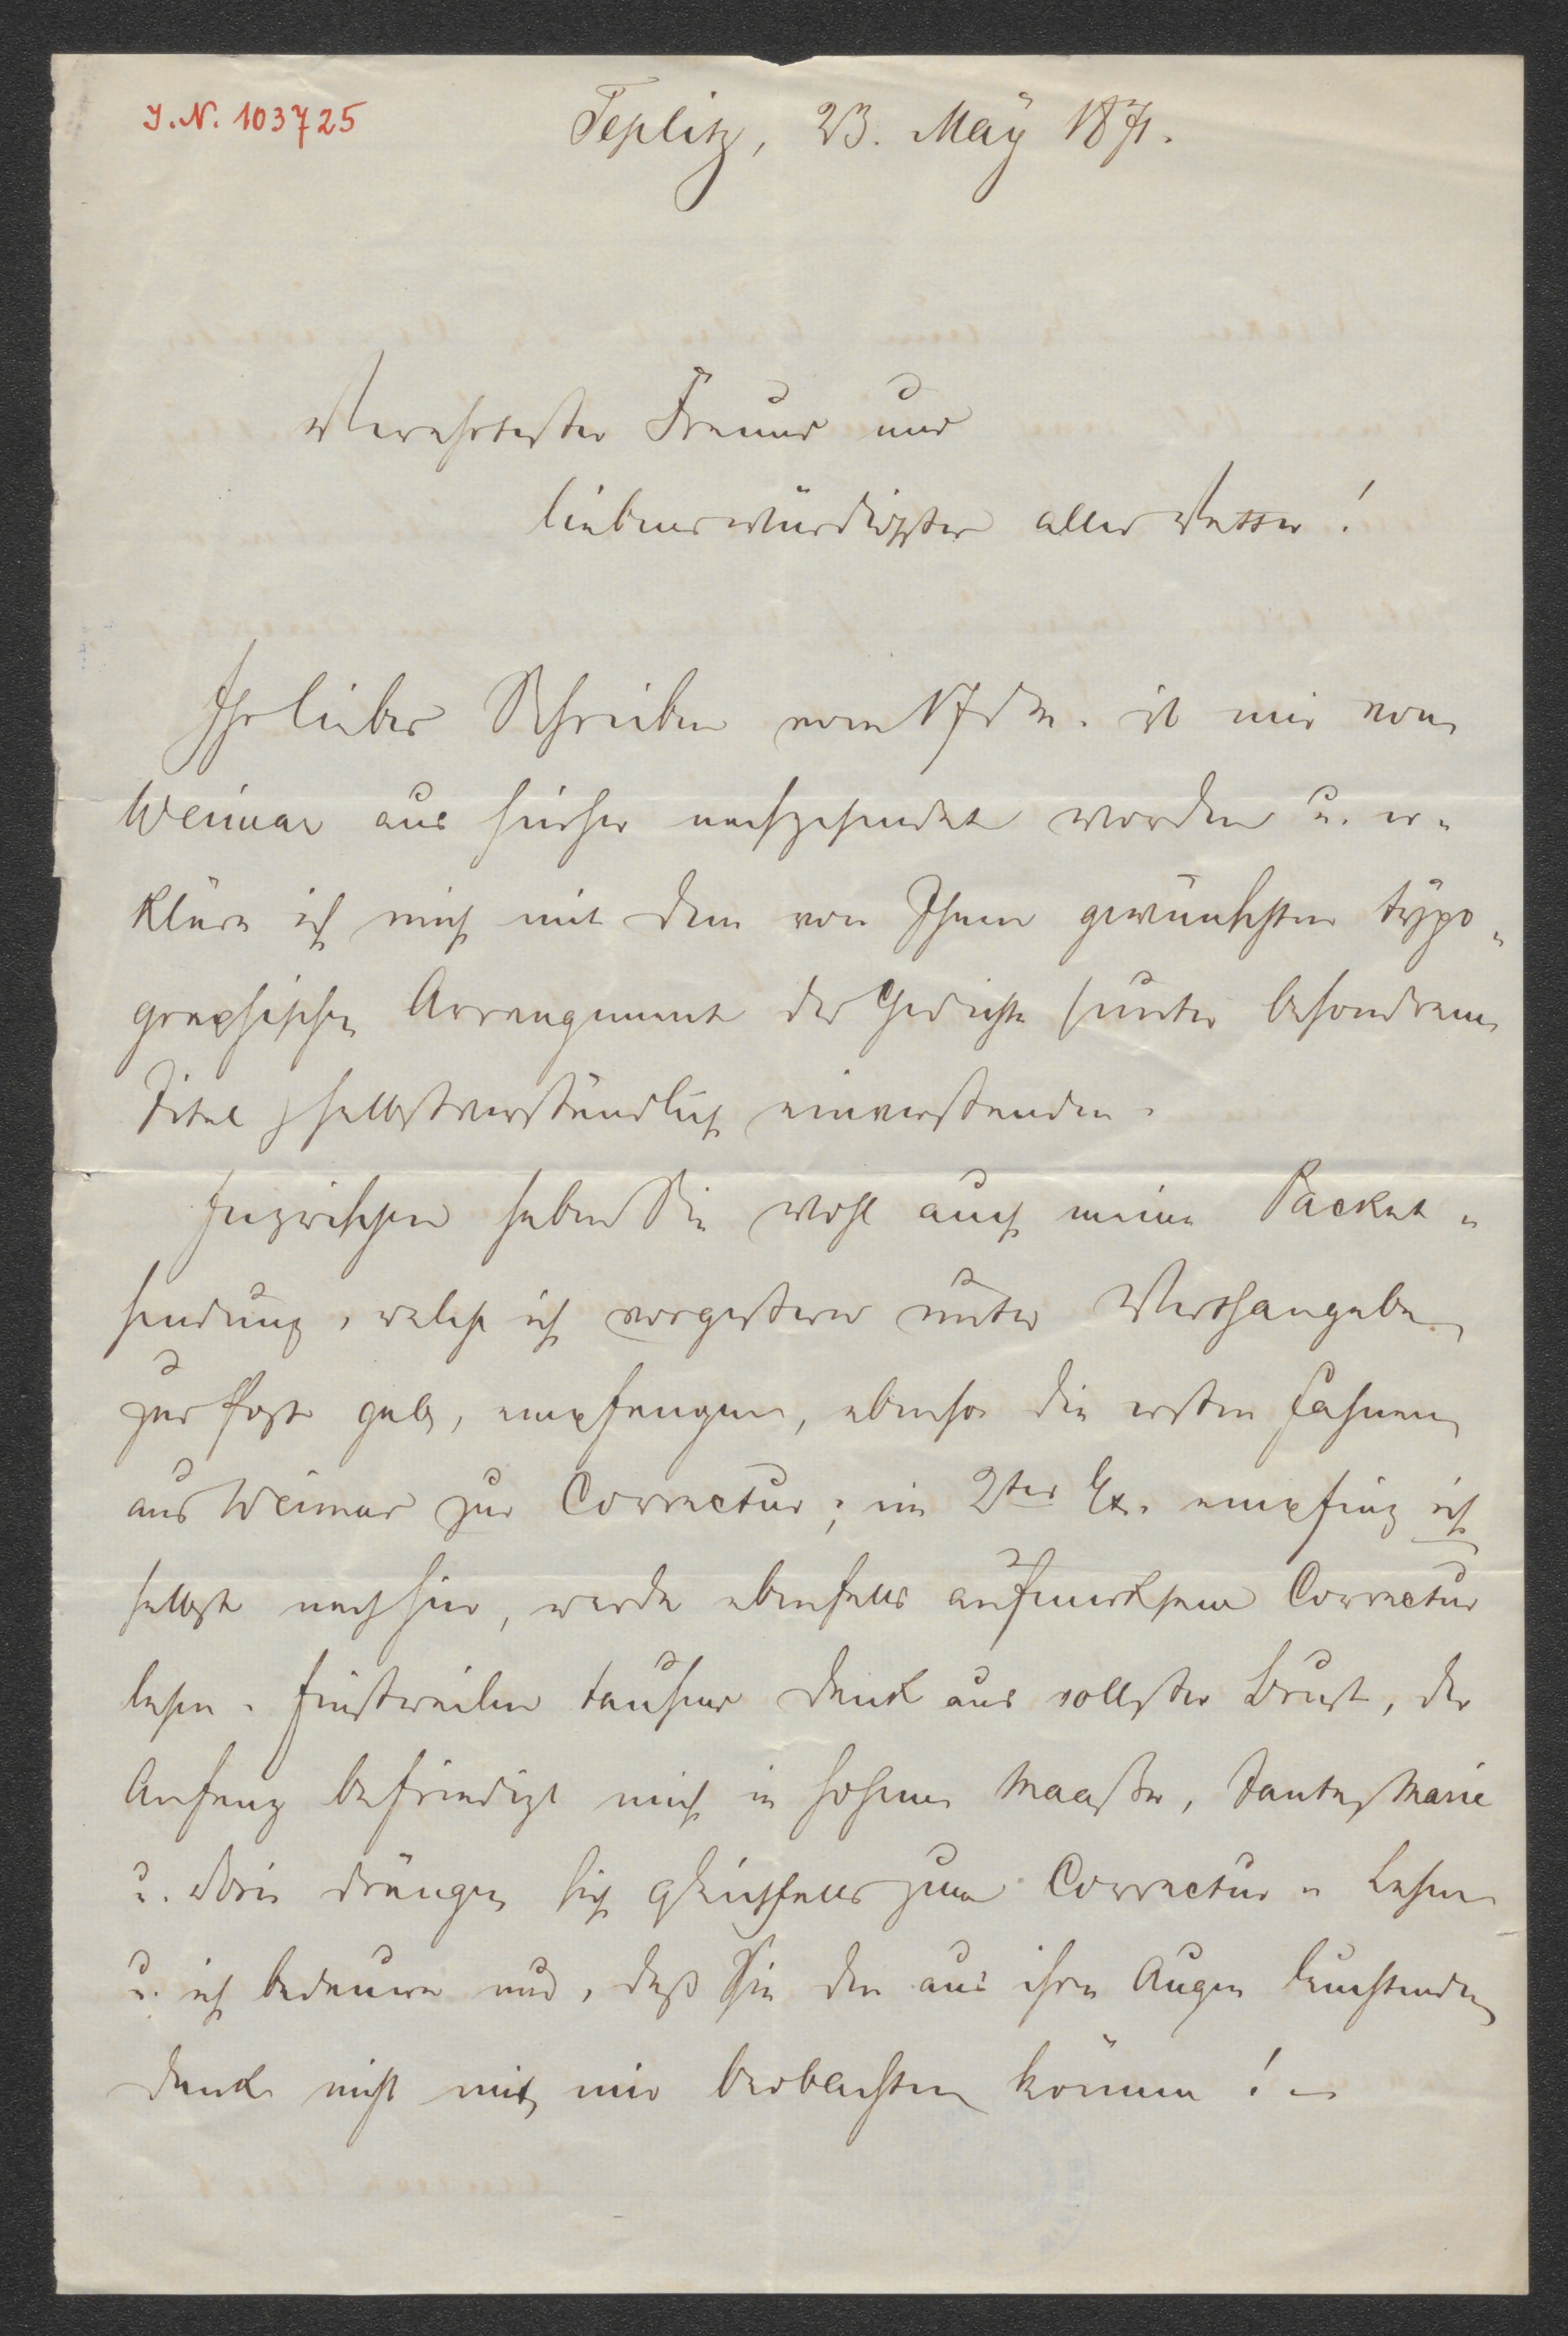 J. N. 103725
Teplitz, 23. May 1871.
Verehrtester Freund und
liebenswürdigster aller Vetter!
Ihr liebes Schreiben vom 17 dM. ist mir von
Weimar aus hierher nachgesendet worden u. er-
kläre ich mich mit dem von Ihnen gewünschten typo-
graphischen Arrangement der Gedichte (unter besondrem
Titel) selbstverständlich einverstanden.
Inzwischen haben Sie wohl auch meine Packet-
sendung, welche ich vorgestern unter Werthangabe
zur Post gab, empfangen, ebenso die ersten Fahnen
aus Weimar zur Correctur; im 2ter Ex. empfing ich
selbst nach hier, werde ebenfalls aufmerksam Correctur
lesen. Einstweilen tausend Dank aus vollster Brust, der
Anfang befriedigt mich in hohem Maaße, Tante Marie
u. drängen sich gleichfalls zum Correctur-Lesen
u. ich bedaure nur, daß Sie den aus ihren Augen leuchtenden
Dank nicht mit mir beobachten können! –